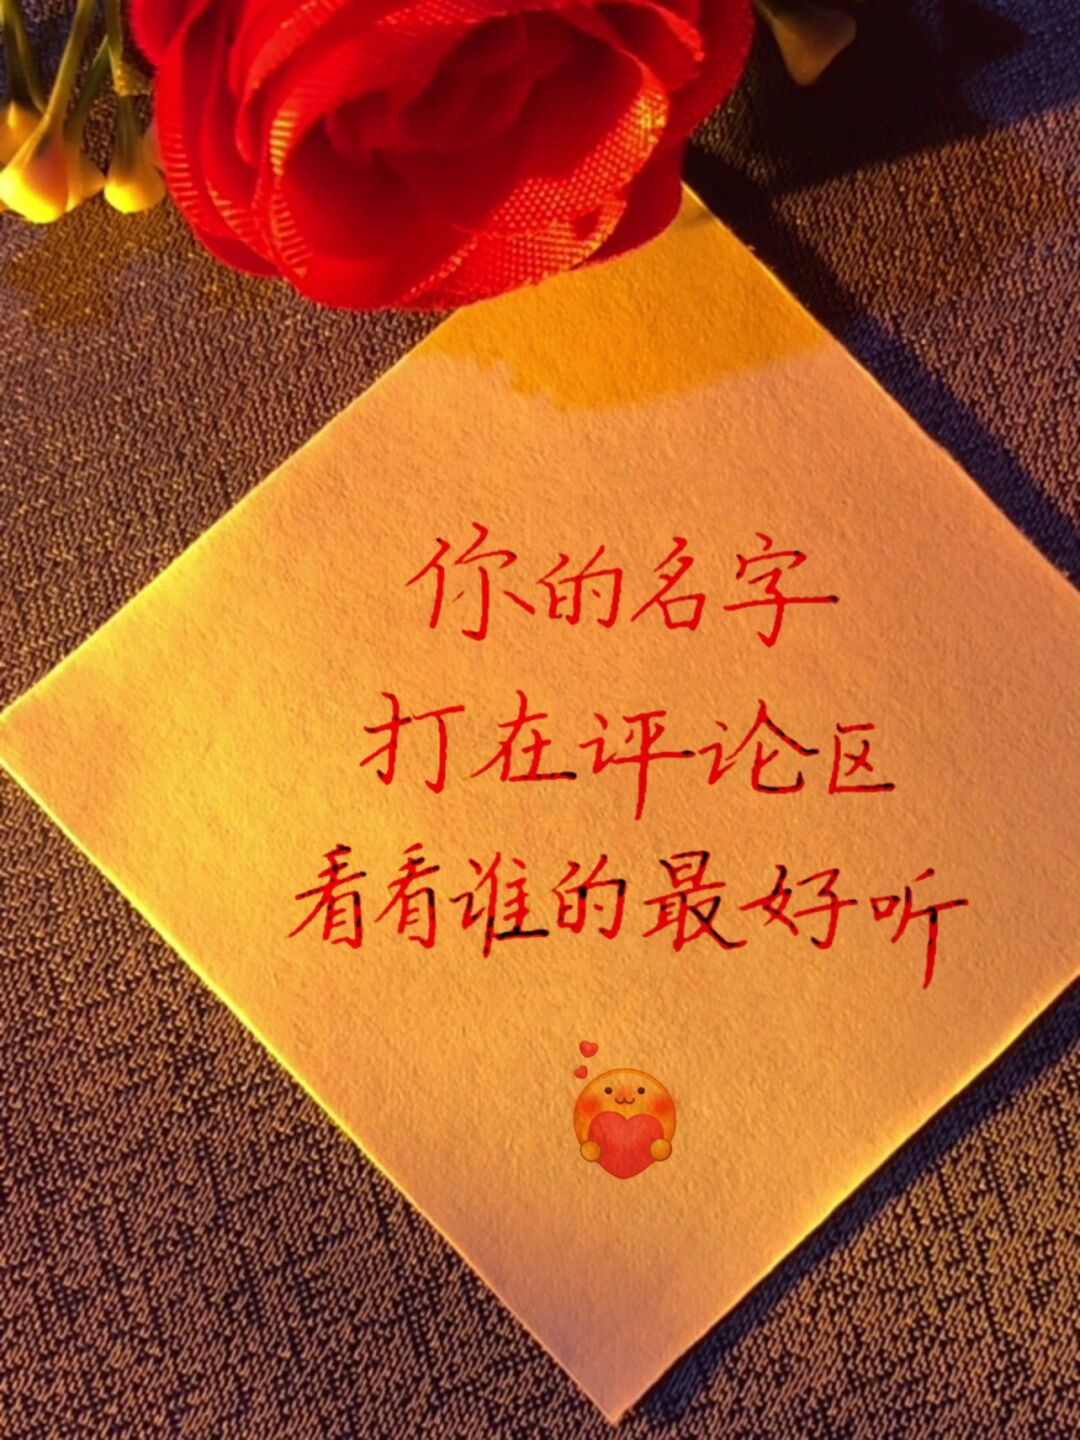 你的名字
打在评论区
看看谁的最好听